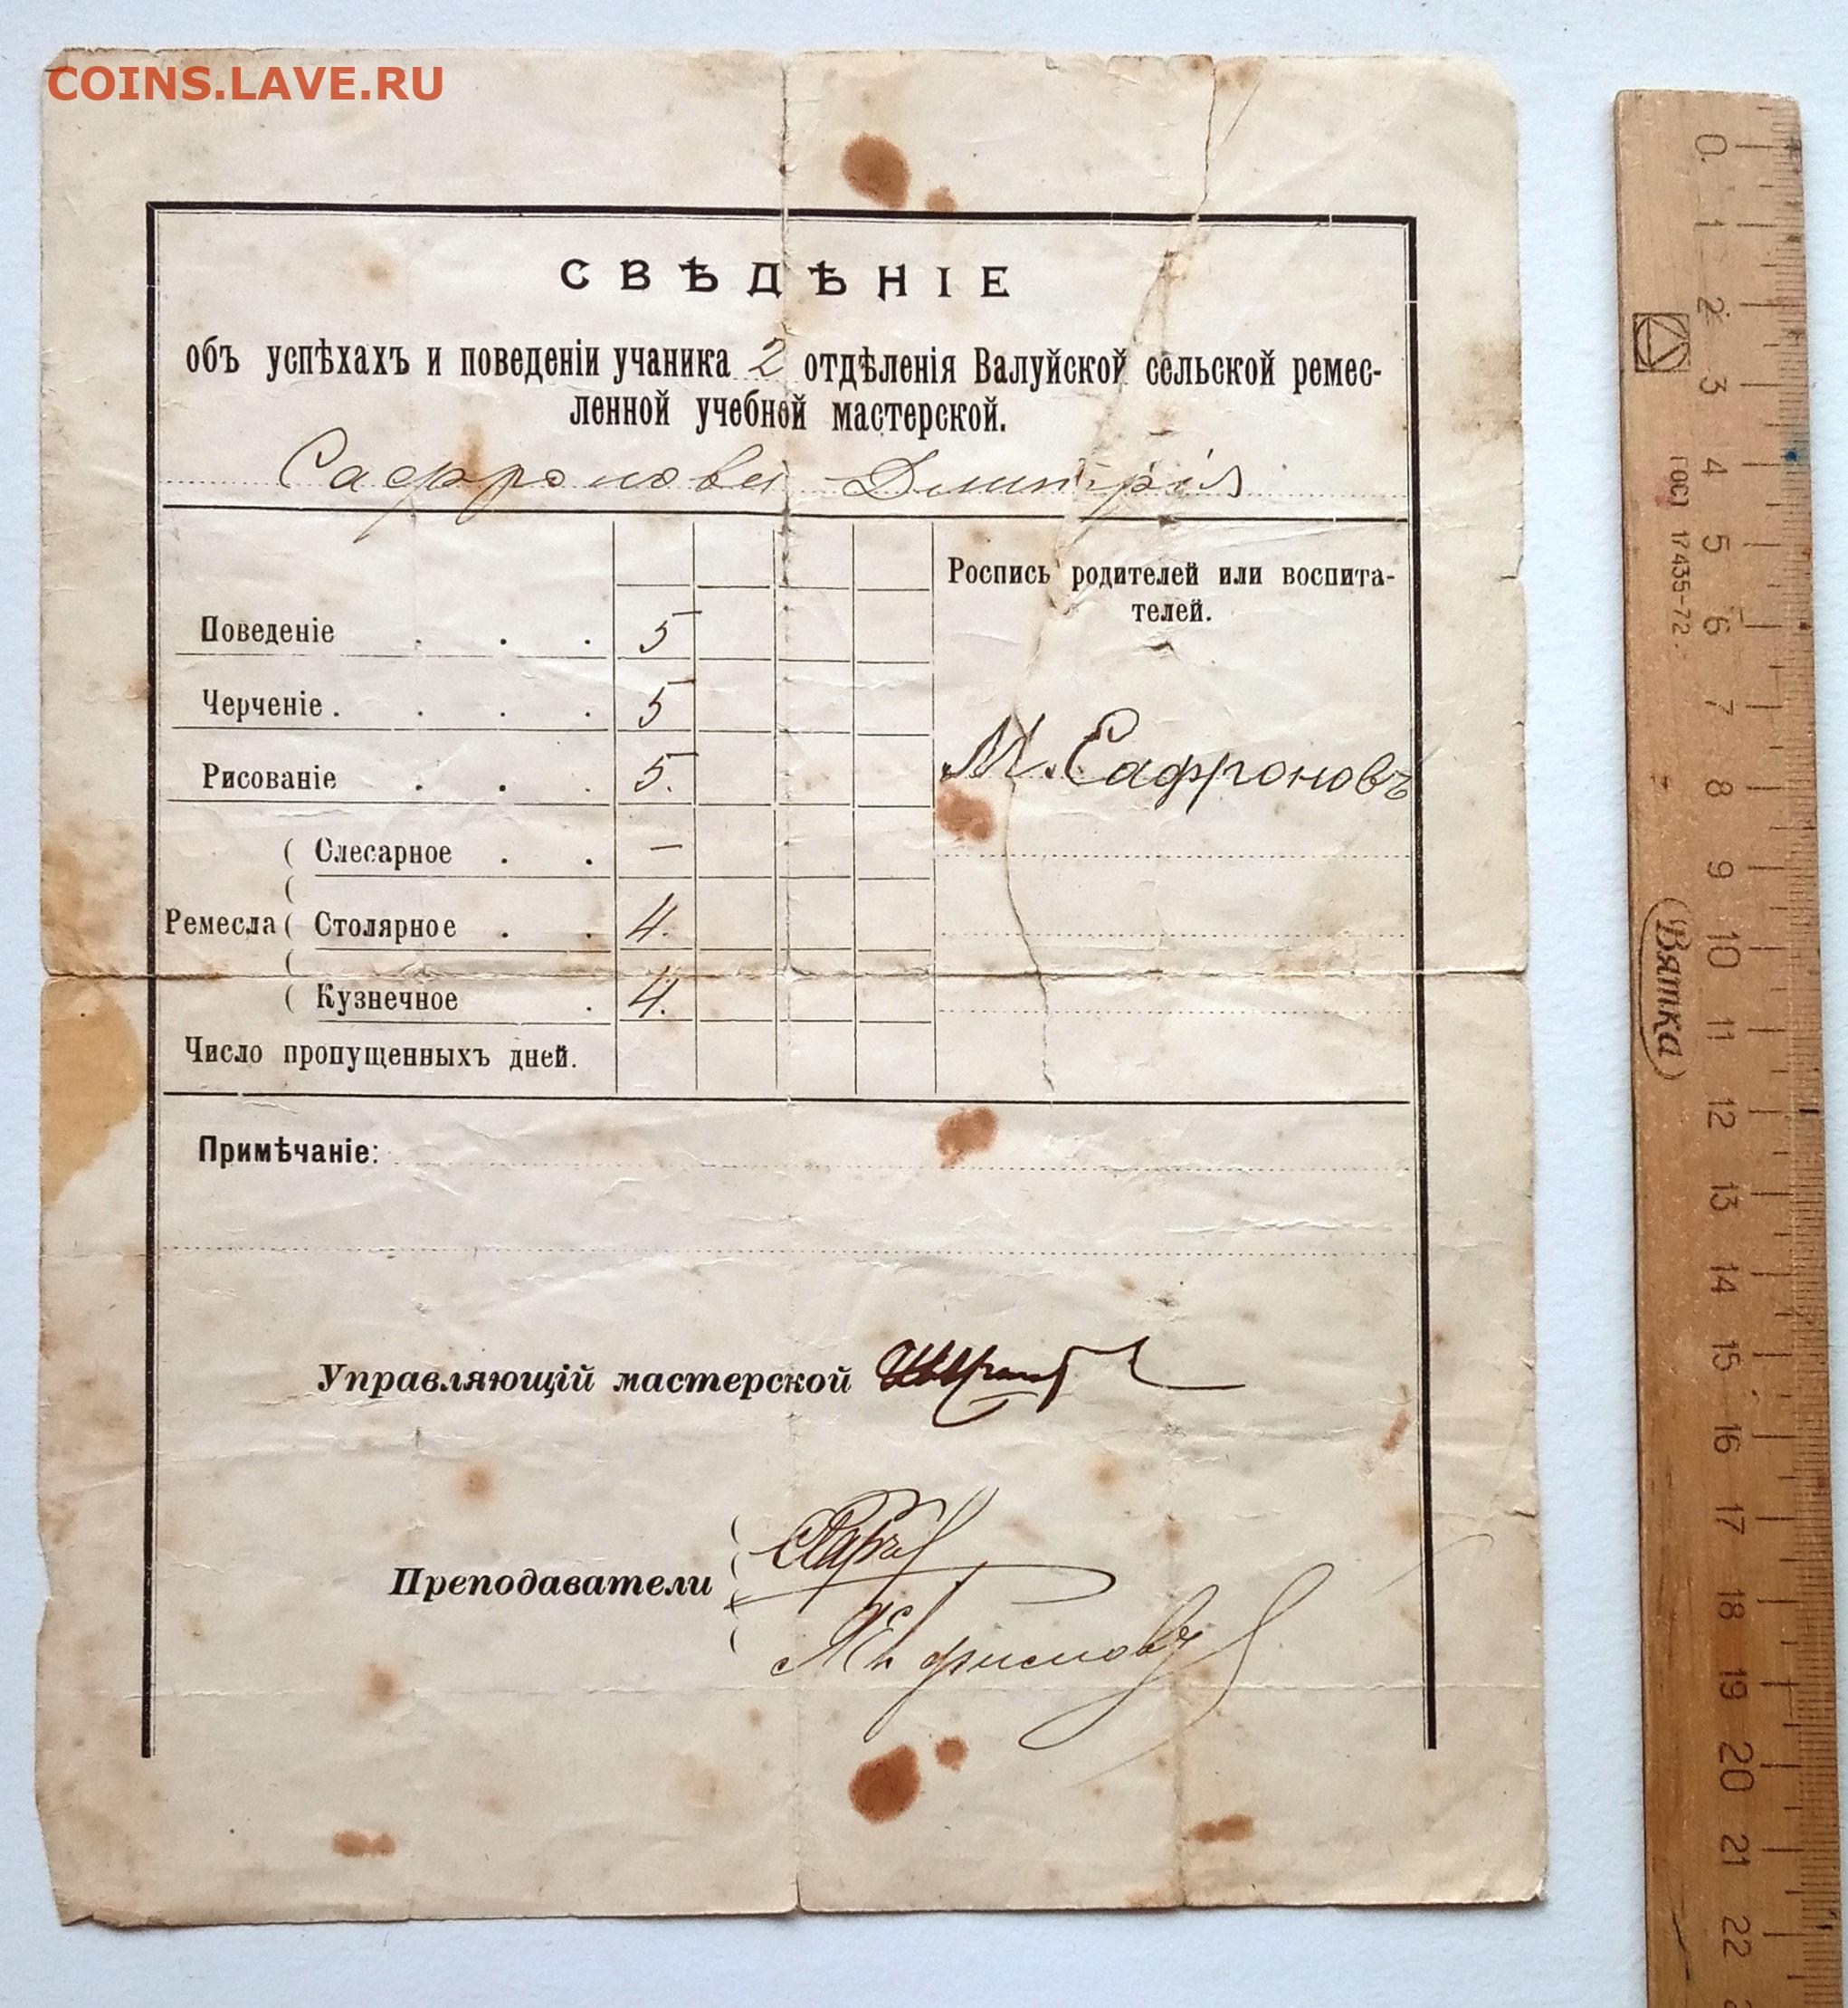 COINS.LAVE.RU
СВѢДѢНІЕ
объ успѣхахъ и поведеніи учаника 2 отдѣленія Валуйской сельской ремес-
ленной учебной мастерской.
Сафронова Дмитрія
Роспись родителей или воспита-
телей.
Поведеніе . . . 5
Черченіе . . . . 5
Рисованіе . . . 5.
М. Сафроновъ
( Слесарное . . —
(
Ремесла ( Столярное . . 4.
(
( Кузнечное . 4.
Число пропущенныхъ дней.
Примѣчаніе:
Управляющій мастерской
Преподаватели
0 1 2 3 4 5 6 7 8 9 10 11 12 13 14 15 16 17 18 19 20 21 22
ГОСТ 17435-72.
Вятка